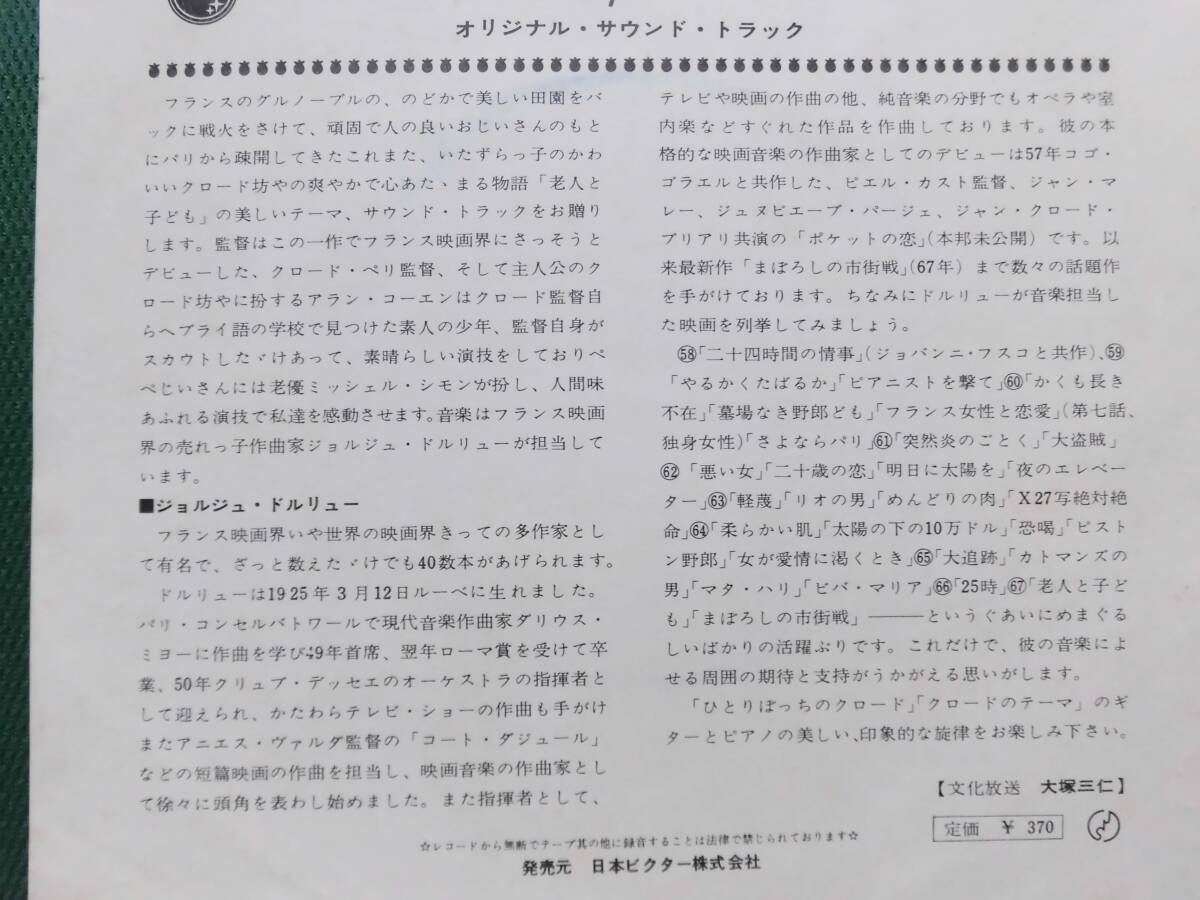 オリジナル・サウンド・トラック
フランスのグルノーブルの、のどかで美しい田園をバ
ックに戦火をさけて、頑固で人の良いおじいさんのもと
にパリから疎開してきたこれまた、いたずらっ子のかわ
いいクロード坊やの爽やかで心あたゝまる物語「老人と
子ども」の美しいテーマ、サウンド・トラックをお贈り
します。監督はこの一作でフランス映画界にさっそうと
デビューした、クロード・ベリ監督、そして主人公のク
ロード坊やに扮するアラン・コーエンはクロード監督自
らヘブライ語の学校で見つけた素人の少年、監督自身が
スカウトしたゞけあって、素晴らしい演技をしておりペ
ペじいさんには老優ミッシェル・シモンが扮し、人間味
あふれる演技で私達を感動させます。音楽はフランス映画
界の売れっ子作曲家ジョルジュ・ドルリューが担当して
います。
■ジョルジュ・ドルリュー
フランス映画界いや世界の映画界きっての多作家とし
て有名で、ざっと数えたゞけでも40数本があげられます。
ドルリューは1925年3月12日ルーベに生れました。
パリ・コンセルバトワールで現代音楽作曲家ダリウス・
ミヨーに作曲を学び49年首席、翌年ローマ賞を受けて卒
業、50年クリュブ・デッセエのオーケストラの指揮者と
して迎えられ、かたわらテレビ・ショーの作曲も手がけ
またアニエス・ヴァルダ監督の「コート・ダジュール」
などの短篇映画の作曲を担当し、映画音楽の作曲家とし
て徐々に頭角を表わし始めました。また指揮者として、
テレビや映画の作曲の他、純音楽の分野でもオペラや室
内楽などすぐれた作品を作曲しております。彼の本
格的な映画音楽の作曲家としてのデビューは57年コゴ・
ゴラエルと共作した、ピエル・カスト監督、ジャン・マ
レー、ジュヌビエーブ・パージェ、ジャン・クロード・
ブリアリ共演の「ポケットの恋」(本邦未公開)です。以
来最新作「まぼろしの市街戦」(67年)まで数々の話題作
を手がけております。ちなみにドルリューが音楽担当し
た映画を列挙してみましょう。
㊽「二十四時間の情事」(ジョバンニ・フスコと共作)、�59
「やるかくたばるか」「ピアニストを撃て」60「かくも長き
不在」「墓場なき野郎ども」「フランス女性と恋愛」(第七話、
独身女性)「さよならパリ」61「突然炎のごとく」「大盗賊」
62「悪い女」「二十歳の恋」「明日に太陽を」「夜のエレベー
ター」63「軽蔑」「リオの男」「めんどりの肉」「X27写絶対絶
命」64「柔らかい肌」「太陽の下の10万ドル」「恐喝」「ピスト
ン野郎」「女が愛情に渇くとき」65「大追跡」「カトマンズの
男」「マタ・ハリ」「ビバ・マリア」66「25時」67「老人と子ど
も」「まぼろしの市街戦」―――というぐあいにめまぐる
しいばかりの活躍ぶりです。これだけで、彼の音楽によ
せる周囲の期待と支持がうかがえる思いがします。
「ひとりぼっちのクロード」「クロードのテーマ」のギ
ターとピアノの美しい、印象的な旋律をお楽しみ下さい。
【文化放送 大塚三仁】
定価 ¥ 370
☆レコードから無断でテープ其の他に録音することは法律で禁じられております☆
発売元 日本ビクター株式会社